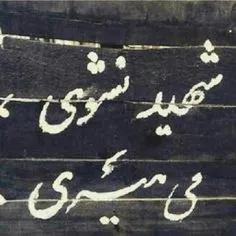 شهید نشوی ،
می میری .